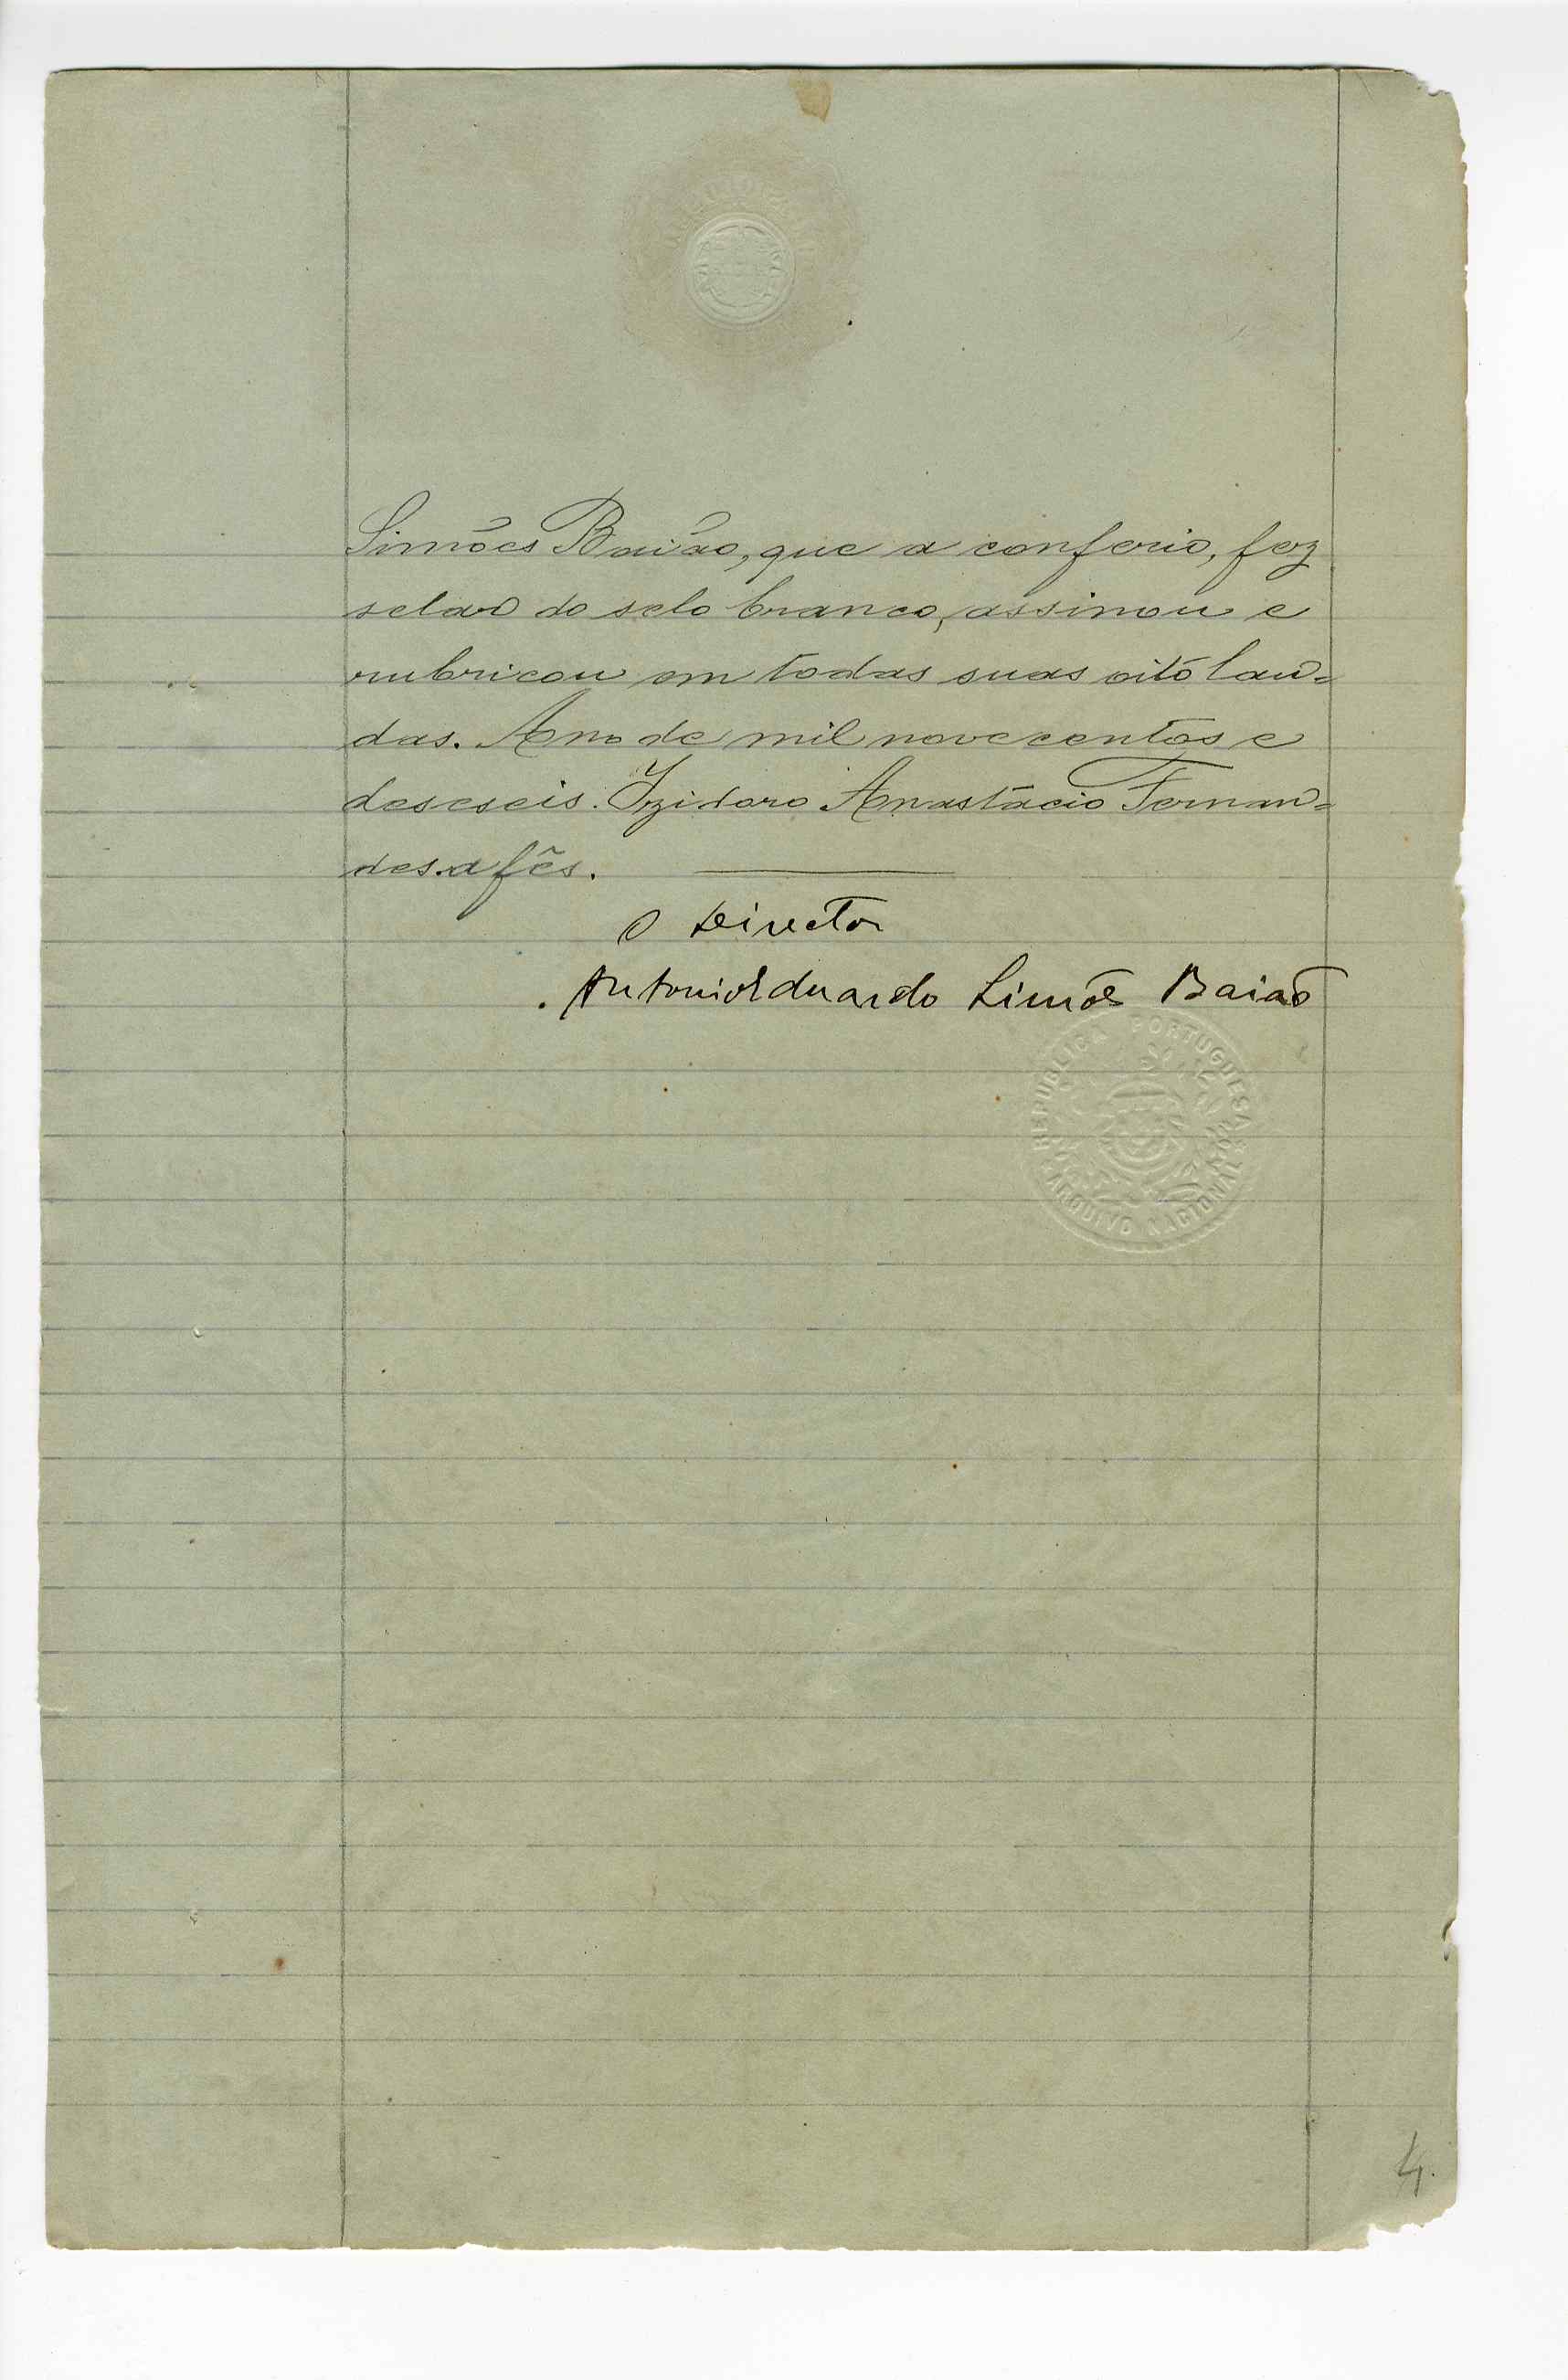 Simões Baião, que a conferio, fez
selar do selo branco, assinou e
rubricou em todas suas oitó lau=
das. Ano de mil novecentos e
deseseis. Izidoro Anastácio Fernan=
des. a fês.
O Director
Antonio Eduardo Simões Baião
REPUBLICA PORTUGUESA
ARQUIVO NACIONAL
4.